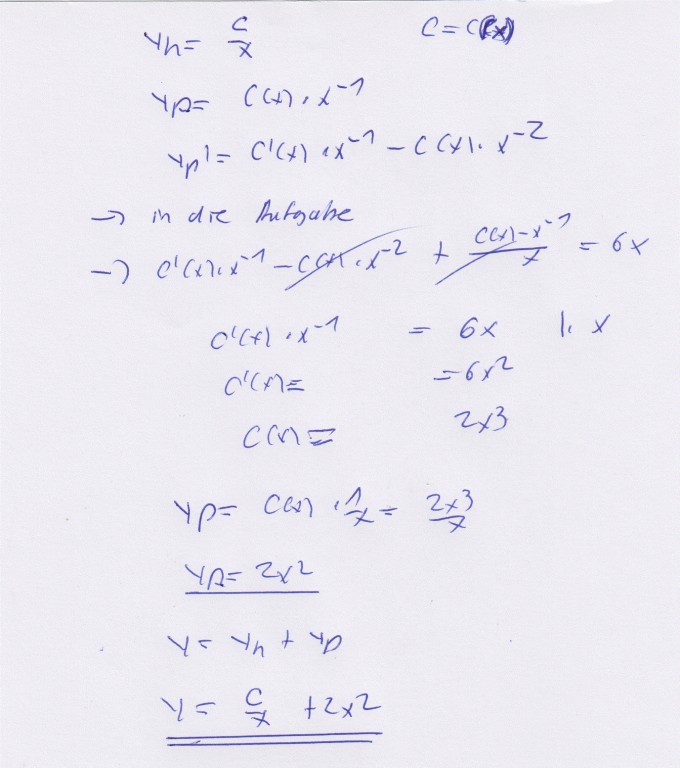 yh= C/x C=C(x)
yp= C(x)·x^-1
yp'= C'(x)·x^-1 - C(x)·x^-2
→ in die Aufgabe
→ C'(x)·x^-1 - C(x)·x^-2 + C(x)-x^-1/x = 6x
C'(x)·x^-1 = 6x |·x
C'(x)= =6x^2
C(x)= 2x3
yp= C(x)·1/x= 2x3/x
yp= 2x2
y= yh + yp
y= C/x +2x2